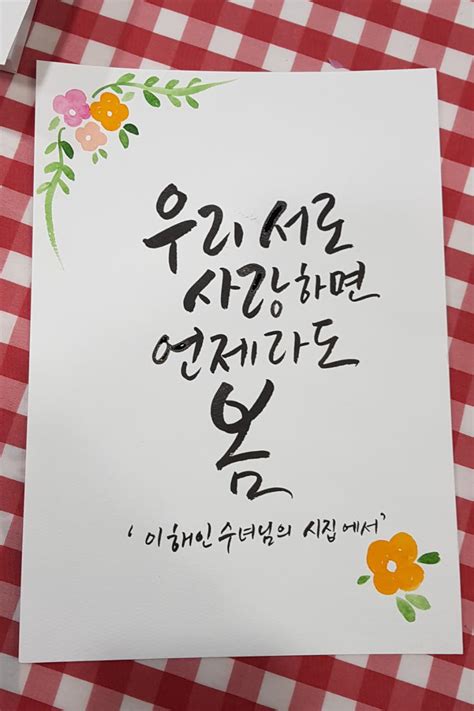 우리 서로
사랑하면
언제라도
봄
'이해인 수녀님의 시집에서'